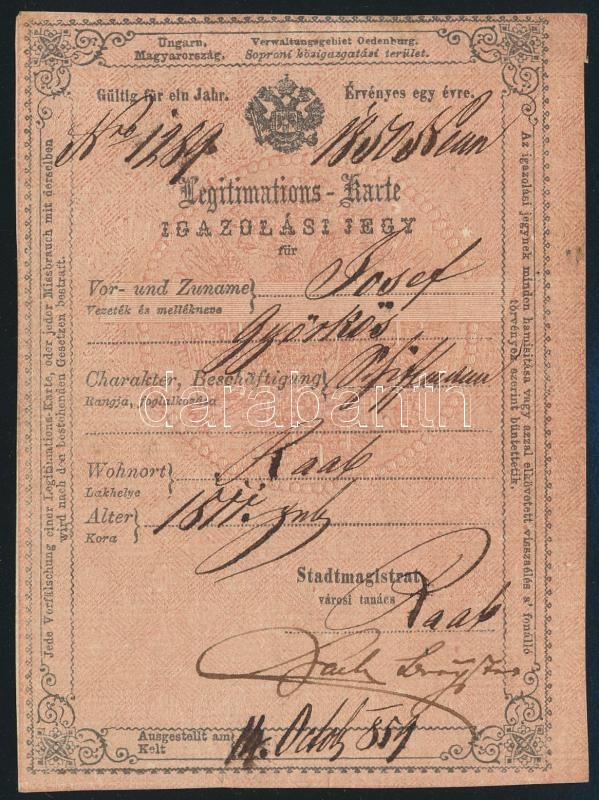 Ungarn.
Magyarország.
Verwaltungsgebiet Oedenburg.
Soproni közigazgatási terület.
Gültig für ein Jahr. Érvényes egy évre.
Nro 1289
Legitimations-Karte
IGAZOLÁSI JEGY
für
Vor- und Zuname} Josef
Vezeték és mellékneve
Györkös
Charakter, Beschäftigung}
Rangja, foglalkozása
Wohnort} Raab
Lakhelye
Alter}
Kora
Stadtmagistrat
városi tanács
Raab
Ausgestellt am 14. Octob 859
Kelt
Jede Verfälschung einer Legitimations-Karte, oder jeder Missbrauch mit derselben
wird nach den bestehenden Gesetzen bestraft.
Az igazolási jegynek minden hamisitása vagy azzal elkövetett visszaélés a' fonálló
törvények szerint büntettetik.
darabanth